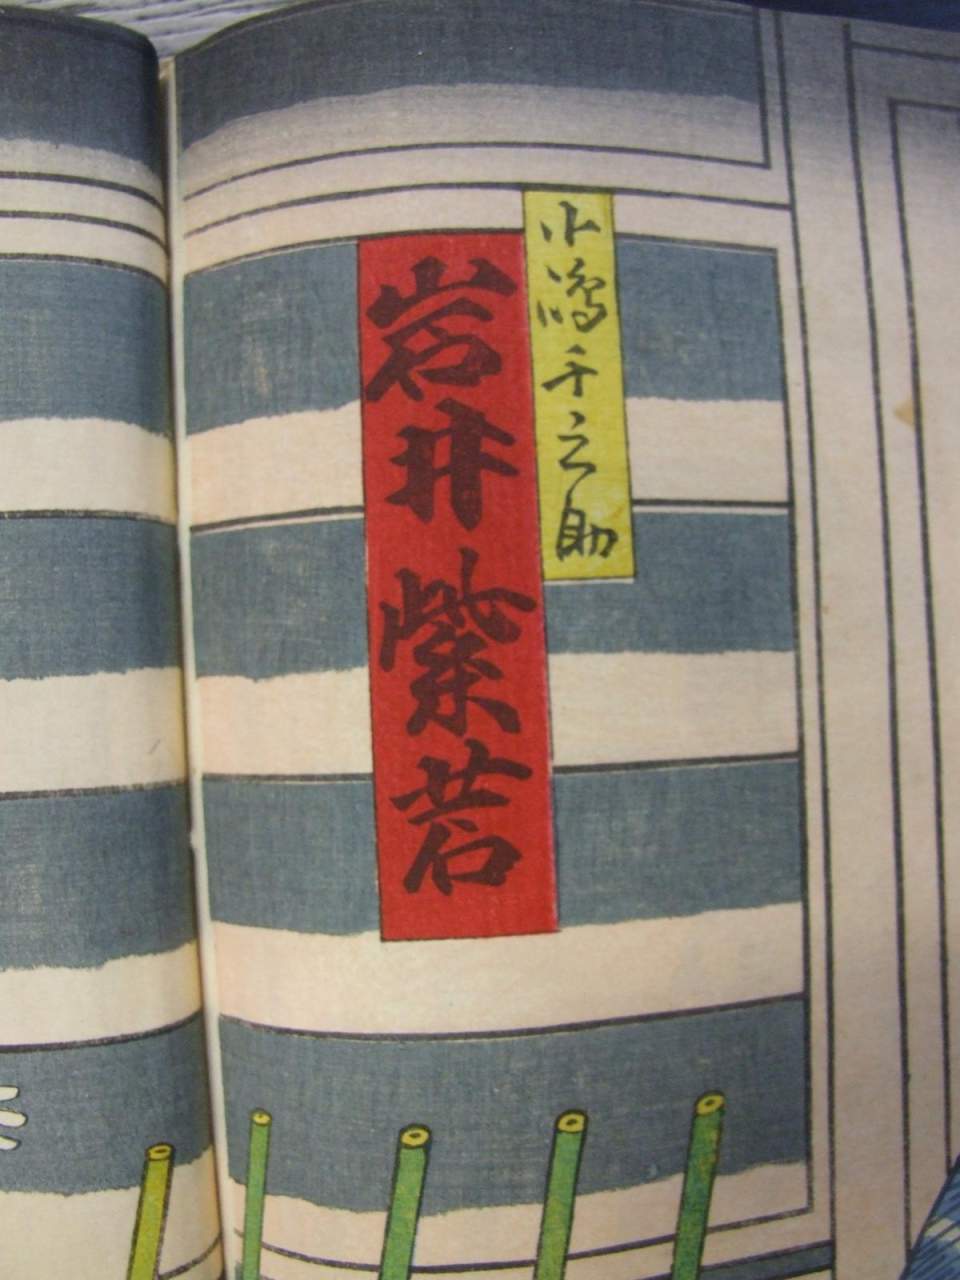 小嶋千之助
岩井紫若